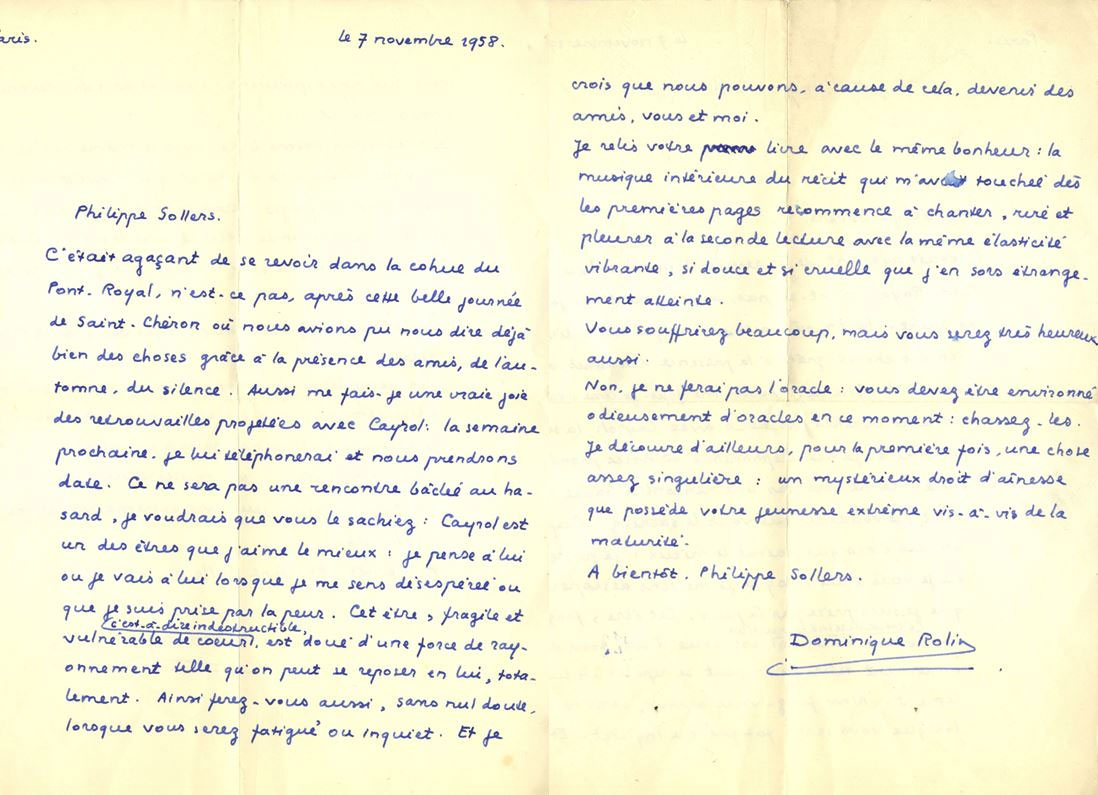 aris.
le 7 novembre 1958.
Philippe Sollers.
C'était agaçant de se revoir dans la cohue du
Pont-Royal, n'est-ce pas, après cette belle journée
de Saint-Chéron où nous avions pu nous dire déjà
bien des choses grâce à la présence des amis, de l'au-
tomne, du silence. Aussi me fais-je une vraie joie
des retrouvailles projetées avec Cayrol : la semaine
prochaine, je lui téléphonerai et nous prendrons
date. Ce ne sera pas une rencontre bâclée au ha-
sard, je voudrais que vous le sachiez : Cayrol est
un des êtres que j'aime le mieux : je pense à lui
ou je vais à lui lorsque je me sens désespérée ou
que je suis prise par la peur. Cet être, fragile et
c'est-à-dire indestructible,
vulnérable de coeur, est doué d'une force de ray-
onnement telle qu'on peut se reposer en lui, tota-
lement. Ainsi ferez-vous aussi, sans nul doute,
lorsque vous serez fatigué ou inquiet. Et je
crois que nous pouvons, à cause de cela, devenir des
amis, vous et moi.
Je relis votre livre avec le même bonheur : la
musique intérieure du récit qui m'avait touchée dès
les premières pages recommence à chanter, rire et
pleurer à la seconde lecture avec la même élasticité
vibrante, si douce et si cruelle que j'en sors étrange-
ment atteinte.
Vous souffrirez beaucoup, mais vous serez très heureux
aussi.
Non, je ne ferai pas l'oracle : vous devez être environné
odieusement d'oracles en ce moment : chassez-les.
Je découvre d'ailleurs, pour la première fois, une chose
assez singulière : un mystérieux droit d'aînesse
que possède votre jeunesse extrême vis-à-vis de la
maturité.
A bientôt. Philippe Sollers.
Dominique Rolin